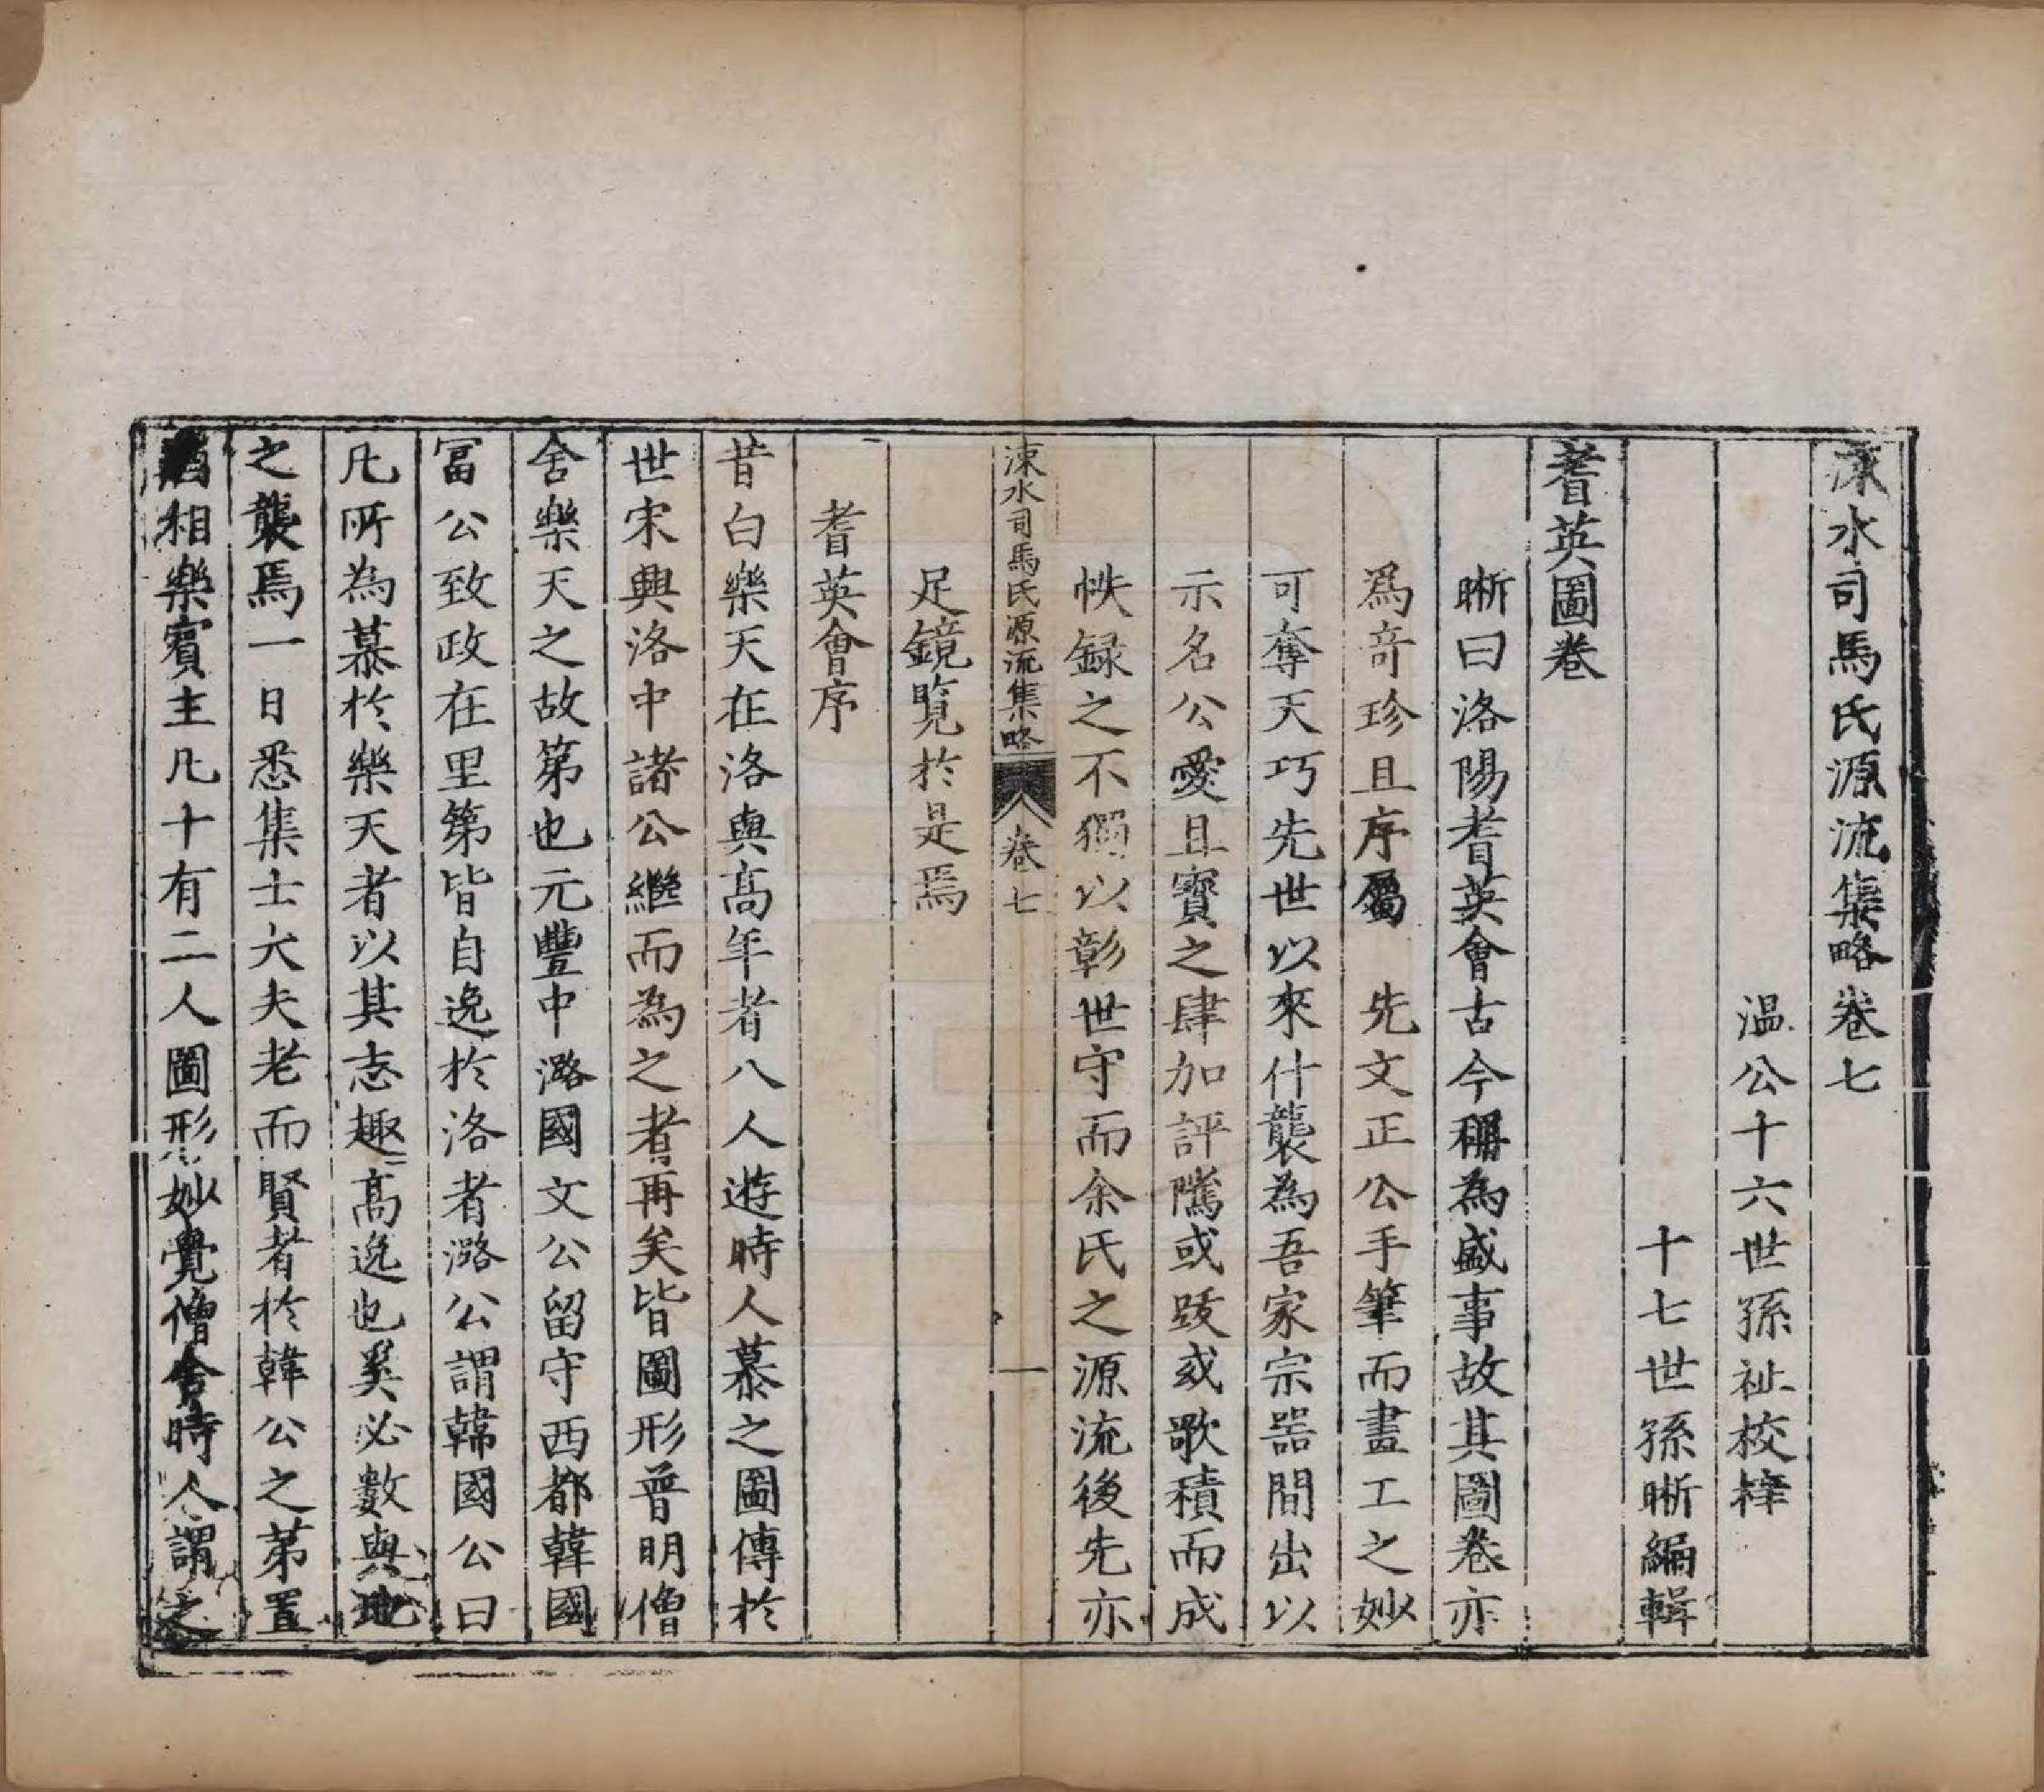 涑水司馬氏源流集略卷七
溫公十六世孫祉校梓
十七世孫晰編輯
耆英圖卷
晰曰洛陽耆英會古今稱為盛事故其圖卷亦
爲奇珍且序屬　先文正公手筆而畫工之妙
可奪天巧先世以來什襲為吾家宗器間出以
示名公愛且寶之肆加評隲或跋或歌積而成
帙録之不獨以彰世守而余氏之源流後先亦
涑水司馬氏源流集略　卷七　一
足鏡覧於是焉
耆英會序
昔白樂天在洛與高年者八人遊時人慕之圖傳於
世宋興洛中諸公繼而為之者再矣皆圖形普明僧
舍樂天之故第也元豐中潞國文公留守西都韓國
富公致政在里第皆自逸於洛者潞公謂韓國公曰
凡所為慕於樂天者以其志趣高逸也奚必數與地
之襲焉一日悉集士大夫老而賢者於韓公之第置
酒相樂賓主凡十有二人圖形妙覺僧舍時人謂之